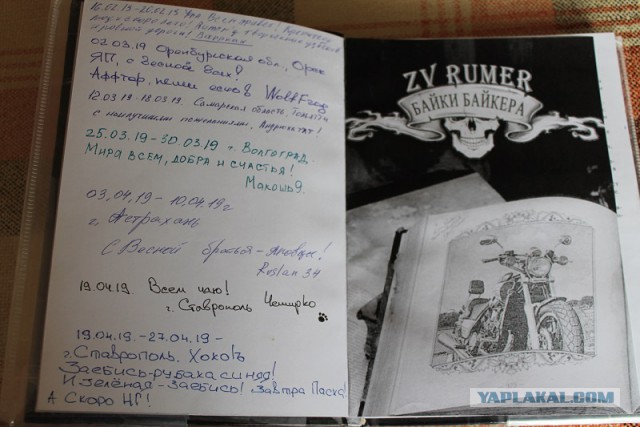 16.02.19-20.02.19 Уфа. Всем привет!
02.03.19 Оренбургская обл., Орск
ЯП, с Весной Всех!
Аффтар, пеши есчо! WolfFrog
12.03.19-18.03.19. Самарская область, Тольятти
с наилучшими пожеланиями,
25.03.19-30.03.19 г. ВОЛГОГРАД.
Мира всем, добра и счастья!
Макошь9.
03.04.19 - 10.04.19г
г. Астрахань
С Весной братья-яповцы!
Ruslan 34
19.04.19. Всем чаю!
г. Ставрополь Чеширко
19.04.19.-27.04.19-
г. Ставрополь. ХохоЪ
Заебись-рубаха синяя!
И зелёная-Заебись! Завтра Пасха!
А Скоро НГ!
ZV RUMER
БАЙКИ БАЙКЕРА
YAPLAKAL.COM